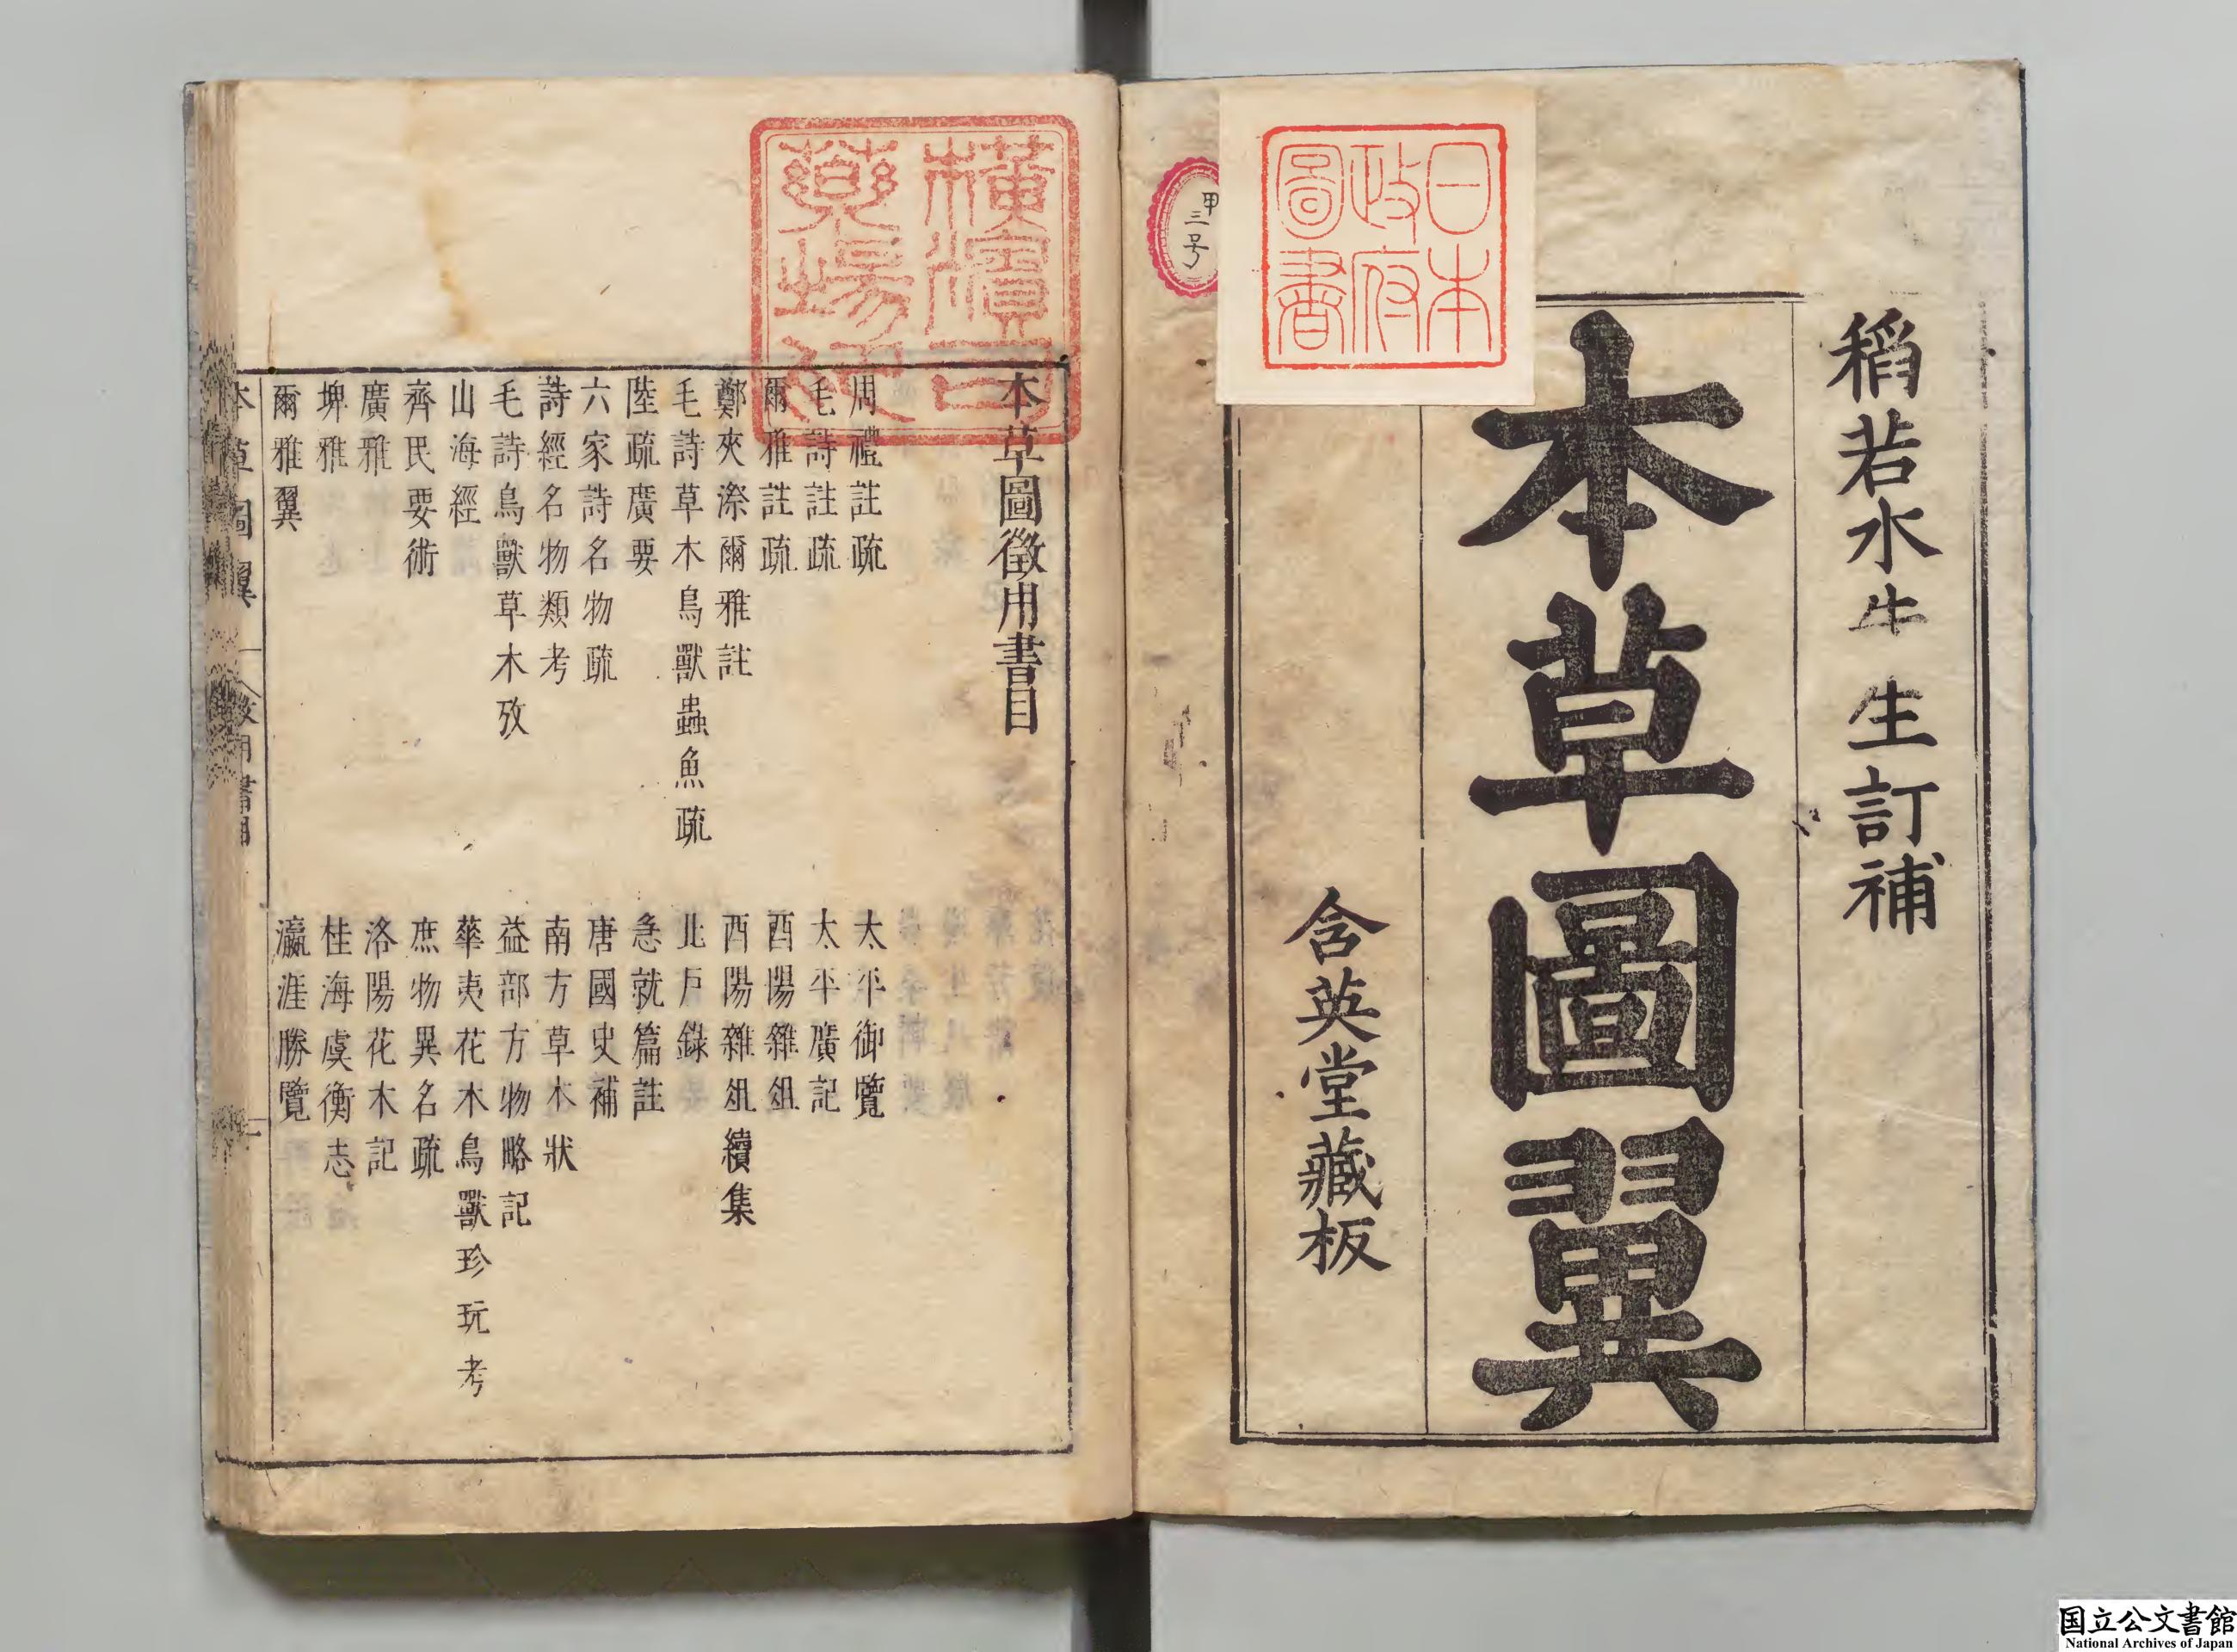 稻若水先生訂補
本草圖翼
含英堂藏板
日本
政府
圖書
甲
三
号
橫濱司
藥場
本草圖徵用書目
周禮註疏
毛詩註疏
爾雅註疏
鄭夾漈爾雅註
毛詩草木鳥獸蟲魚疏
陸疏廣要
六家詩名物疏
詩經名物類考
毛詩鳥獸草木攷
山海經
齊民要術
廣雅
埤雅
爾雅翼
太平御覽
太平廣記
酉陽雜俎
酉陽雜俎續集
北戶錄
急就篇註
唐國史補
南方草木狀
益部方物略記
華夷花木鳥獸珍玩考
庶物異名疏
洛陽花木記
桂海虞衡志
瀛涯勝覽
本草圖翼
徵用書目
一
国立公文書館
National Archives of Japan